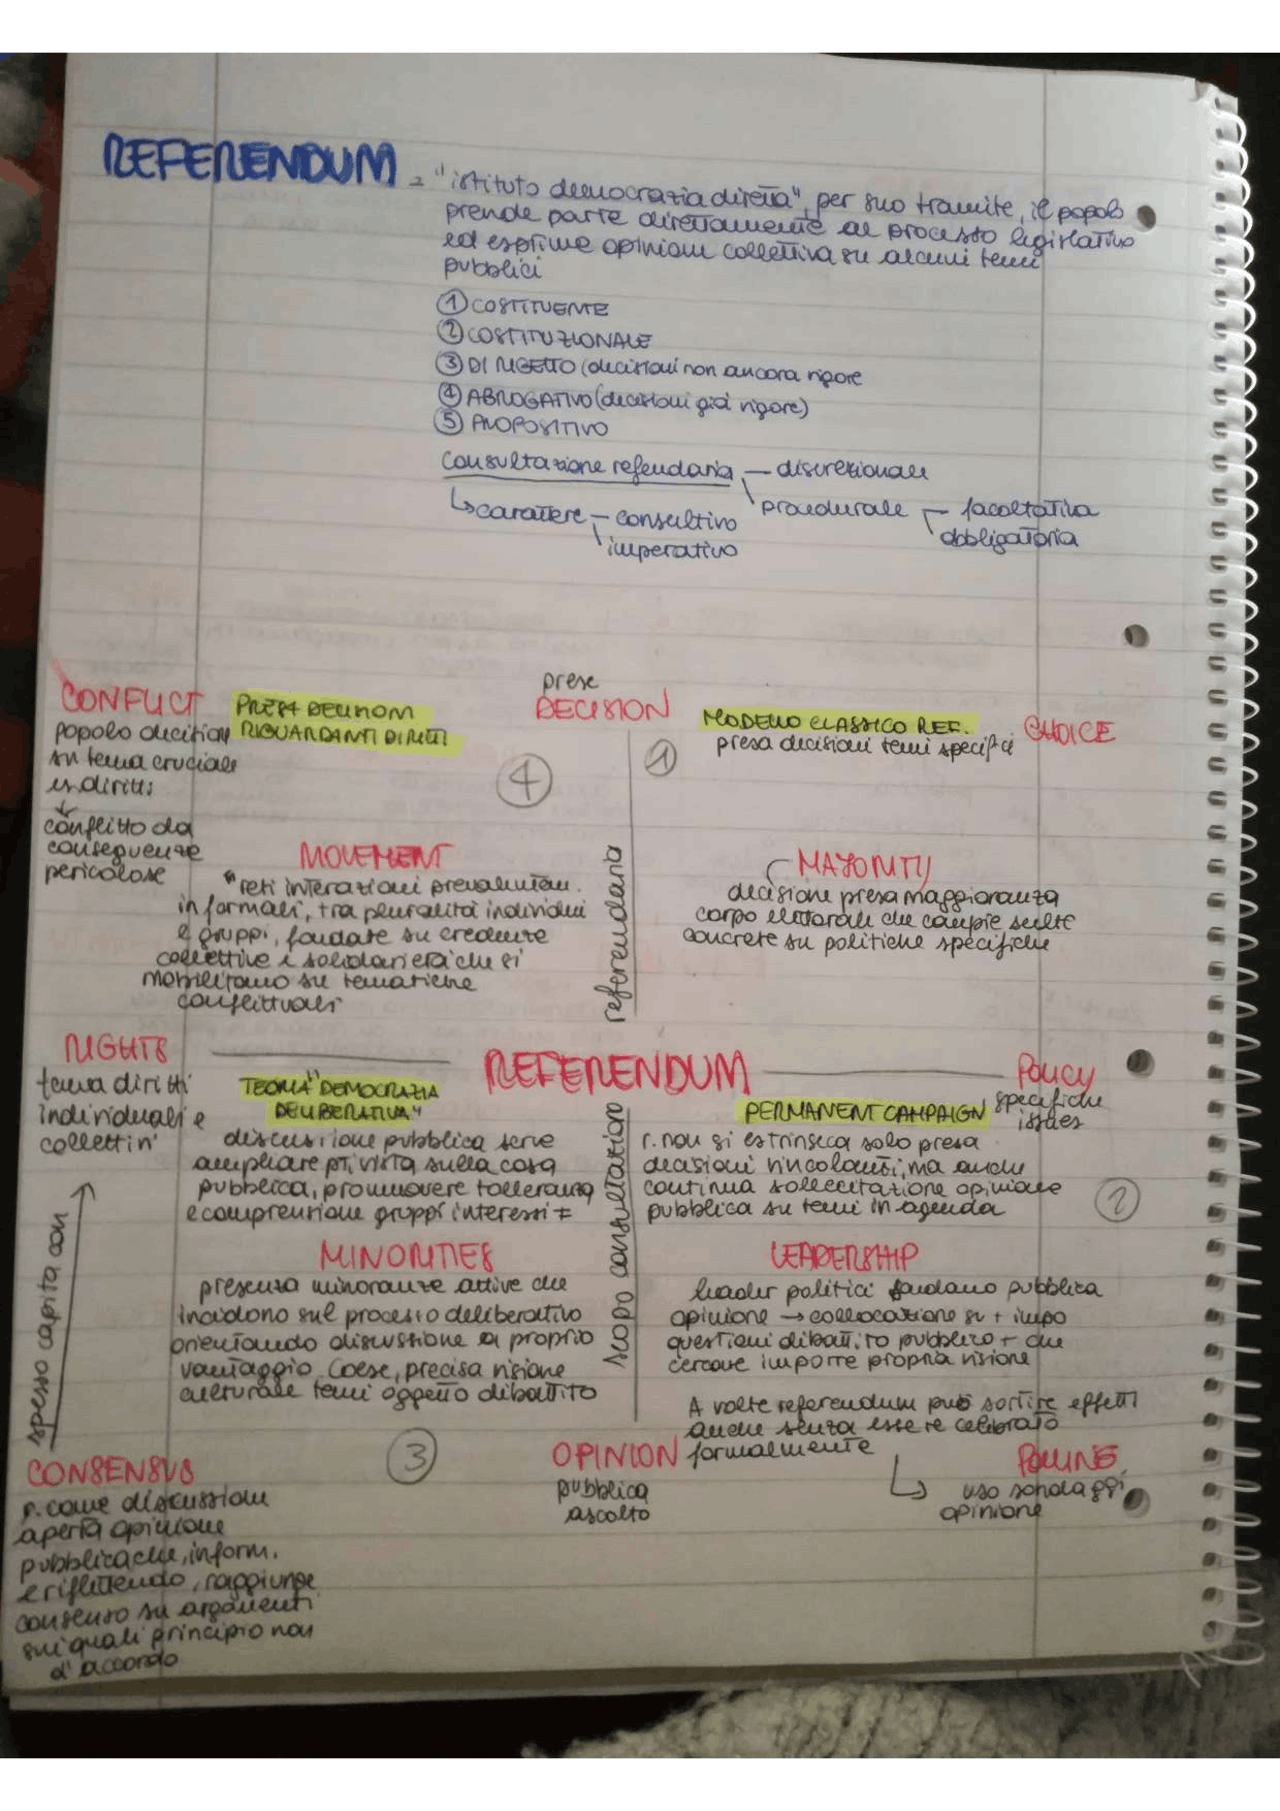 REFERENDUM = "istituto democrazia diretta", per suo tramite, il popolo
prende parte direttamente al processo legislativo
ed esprime opinioni collettiva su alcuni temi
pubblici
① COSTITUENTE
② COSTITUZIONALE
③ DI RIGETTO (decisioni non ancora vigore
④ ABROGATIVO (decisioni già vigore)
⑤ PROPOSITIVO
Consultazione refendaria — discrezionale
procedurale — facoltativa
obbligatoria
↳ carattere — consultivo
imperativo
CONFLICT
popolo decisione
su tema cruciale
es diritti
↓
conflitto da
conseguenze
pericolose
PRESA DECISIONI
RIGUARDANTI DIRITTI
④
prese
DECISION
①
MODELLO CLASSICO REF.
presa decisioni temi specifici
CHOICE
MOVEMENT
"reti interazioni prevalentem.
informali, tra pluralità individui
e gruppi, fondate su credenze
collettive e solidarietà che si
mobilitano su tematiche
conflittuali
referendaria
MAJORITY
decisione presa maggioranza
corpo elettorale che compie scelte
concrete su politiche specifiche
RIGHTS
tema diritti
individuali e
collettivi
REFERENDUM
POLICY
specifiche
issues
TEORIA "DEMOCRAZIA
DELIBERATIVA"
discussione pubblica serve
ampliare pt. vista sulla cosa
pubblica, promuovere tolleranza
e comprensione gruppi interessi ≠
PERMANENT CAMPAIGN
r. non si estrinseca solo presa
decisioni vincolanti, ma anche
continua sollecitazione opinione
pubblica su temi in agenda
②
scopo consultatorio
MINORITIES
presenza minoranze attive che
incidono sul processo deliberativo
orientando discussione a proprio
vantaggio. Coese, precisa visione
culturale temi oggetto dibattito
LEADERSHIP
leader politici sondano pubblica
opinione → collocazione su + impo
questioni dibattito pubblico + che
cercare imporre propria visione
A volte referendum può sortire effetti
anche senza essere celebrato
formalmente
spesso capita con
CONSENSUS
r. come discussione
aperta opinione
pubblica che, inform.
e riflettendo, raggiunge
consenso su argomenti
sui quali principio non
d'accordo
③
OPINION
pubblica
ascolto
POLLING
uso sondaggi
opinione